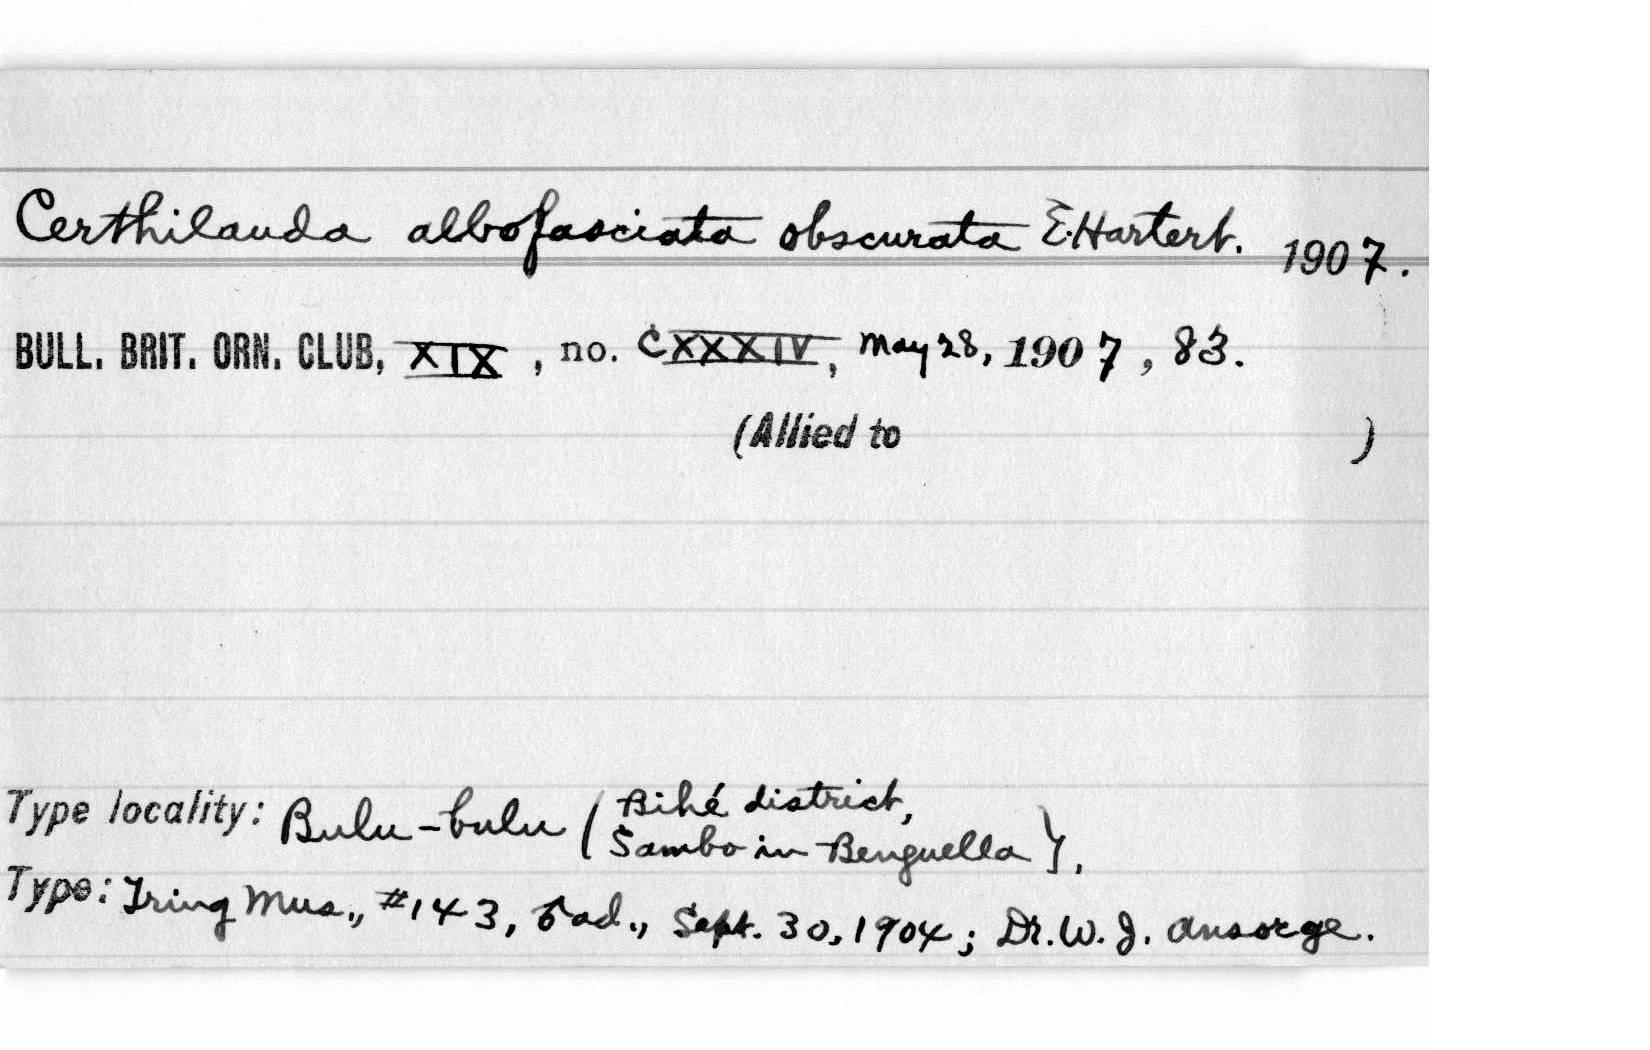 Certhilauda albofasciata obscurata E. Hartert. 1907.
BULL. BRIT. ORN. CLUB, XIX, no. CXXXIV, May 28, 1907, 83.
(Allied to )
Type locality: Bulu-bulu (Bihé district,
Sambo in Benguella).
Type: Tring Mus., #143, ♂ ad., Sept. 30, 1904; Dr. W. J. Ansorge.